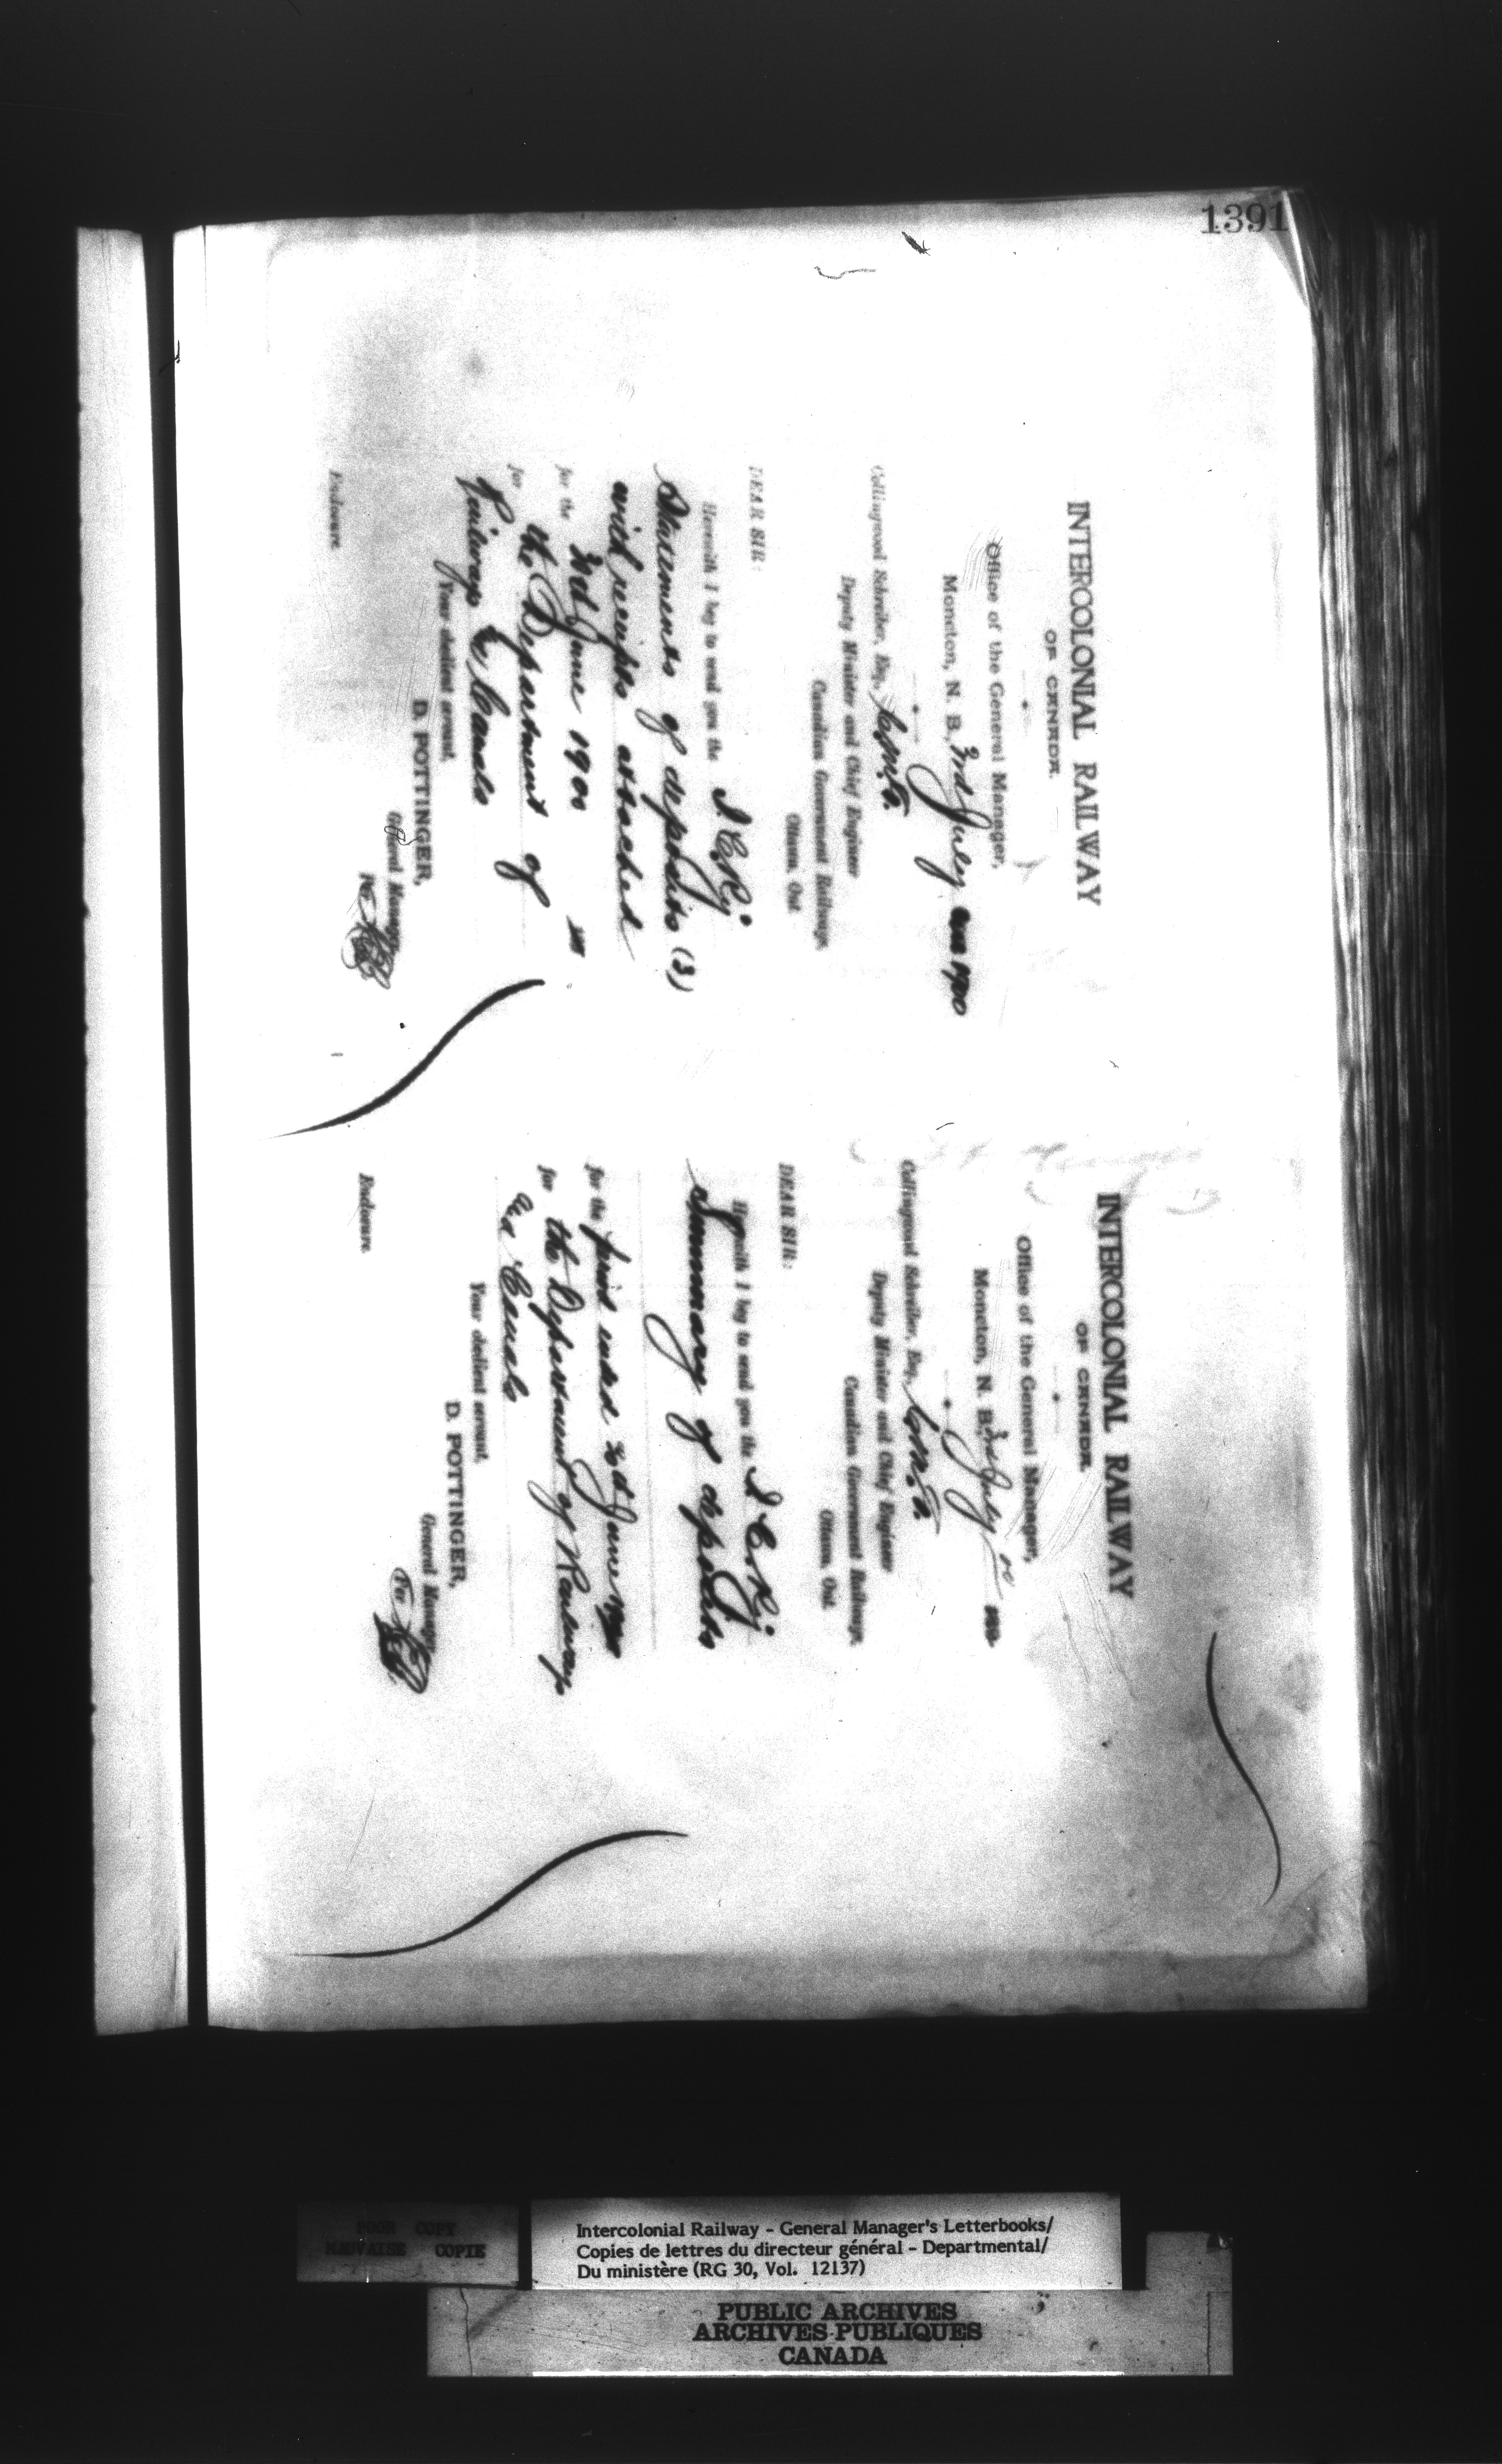 1391
INTERCOLONIAL RAILWAY
OF CANADA.
Office of the General Manager,
Moncton, N. B., 3rd July 1900
Collingwood Schreiber, Esq., C.M.G.
Deputy Minister and Chief Engineer
Canadian Government Railways,
Ottawa, Ont.
DEAR SIR:
Herewith I beg to send you the I.C.Ry.
Statements of deposits (3)
with receipts attached
for the June 1900
for the Department of
Railways & Canals
Your obedient servant,
D. POTTINGER,
General Manager,
Enclosure.
INTERCOLONIAL RAILWAY
OF CANADA.
Office of the General Manager,
Moncton, N. B. 3rd July 00
Collingwood Schreiber, Esq., C.M.G.
Deputy Minister and Chief Engineer
Canadian Government Railways,
Ottawa, Ont.
DEAR SIR:
Herewith I beg to send you the I.C.Ry.
Summary of deposits
for the period ended June
for the Department of Railways
Canals
Your obedient servant,
D. POTTINGER,
General Manager,
Enclosure.
POOR COPY
MAUVAISE COPIE
Intercolonial Railway - General Manager's Letterbooks/
Copies de lettres du directeur général - Departmental/
Du ministère (RG 30, Vol. 12137)
PUBLIC ARCHIVES
ARCHIVES PUBLIQUES
CANADA